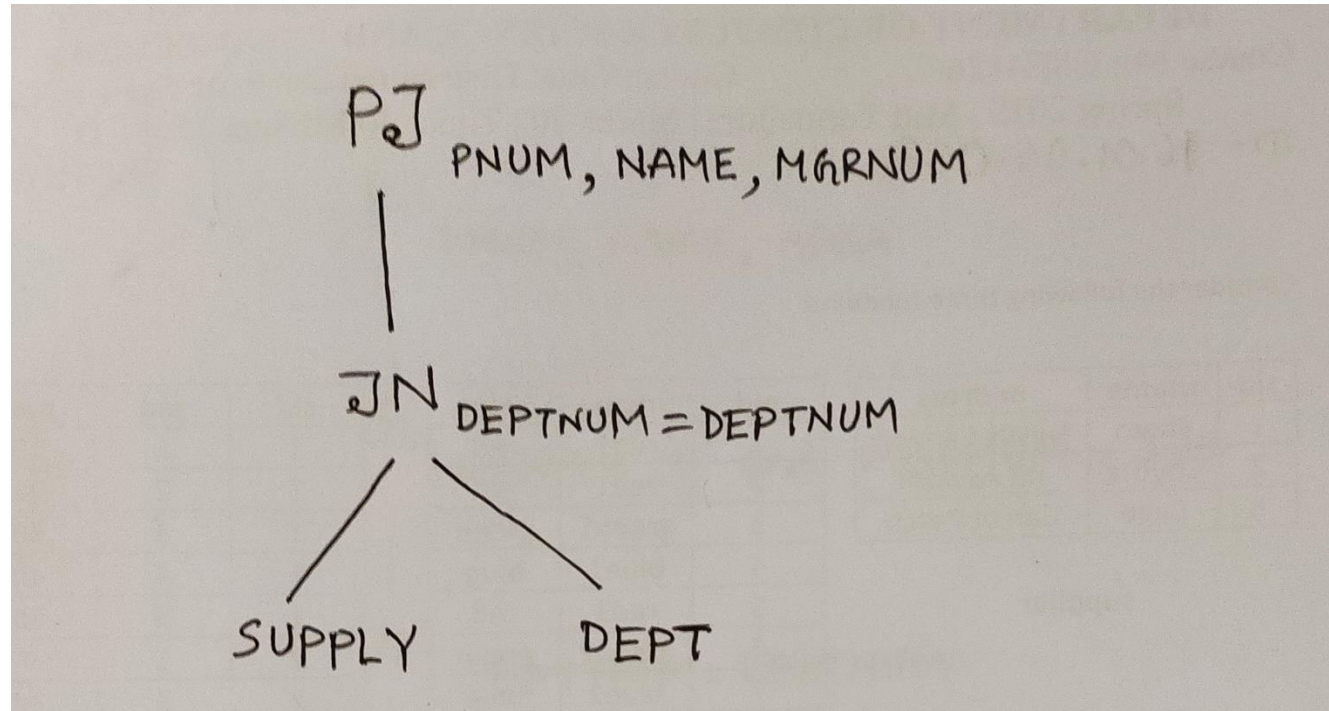 PJ PNUM, NAME, MGRNUM
JN DEPTNUM = DEPTNUM
SUPPLY DEPT